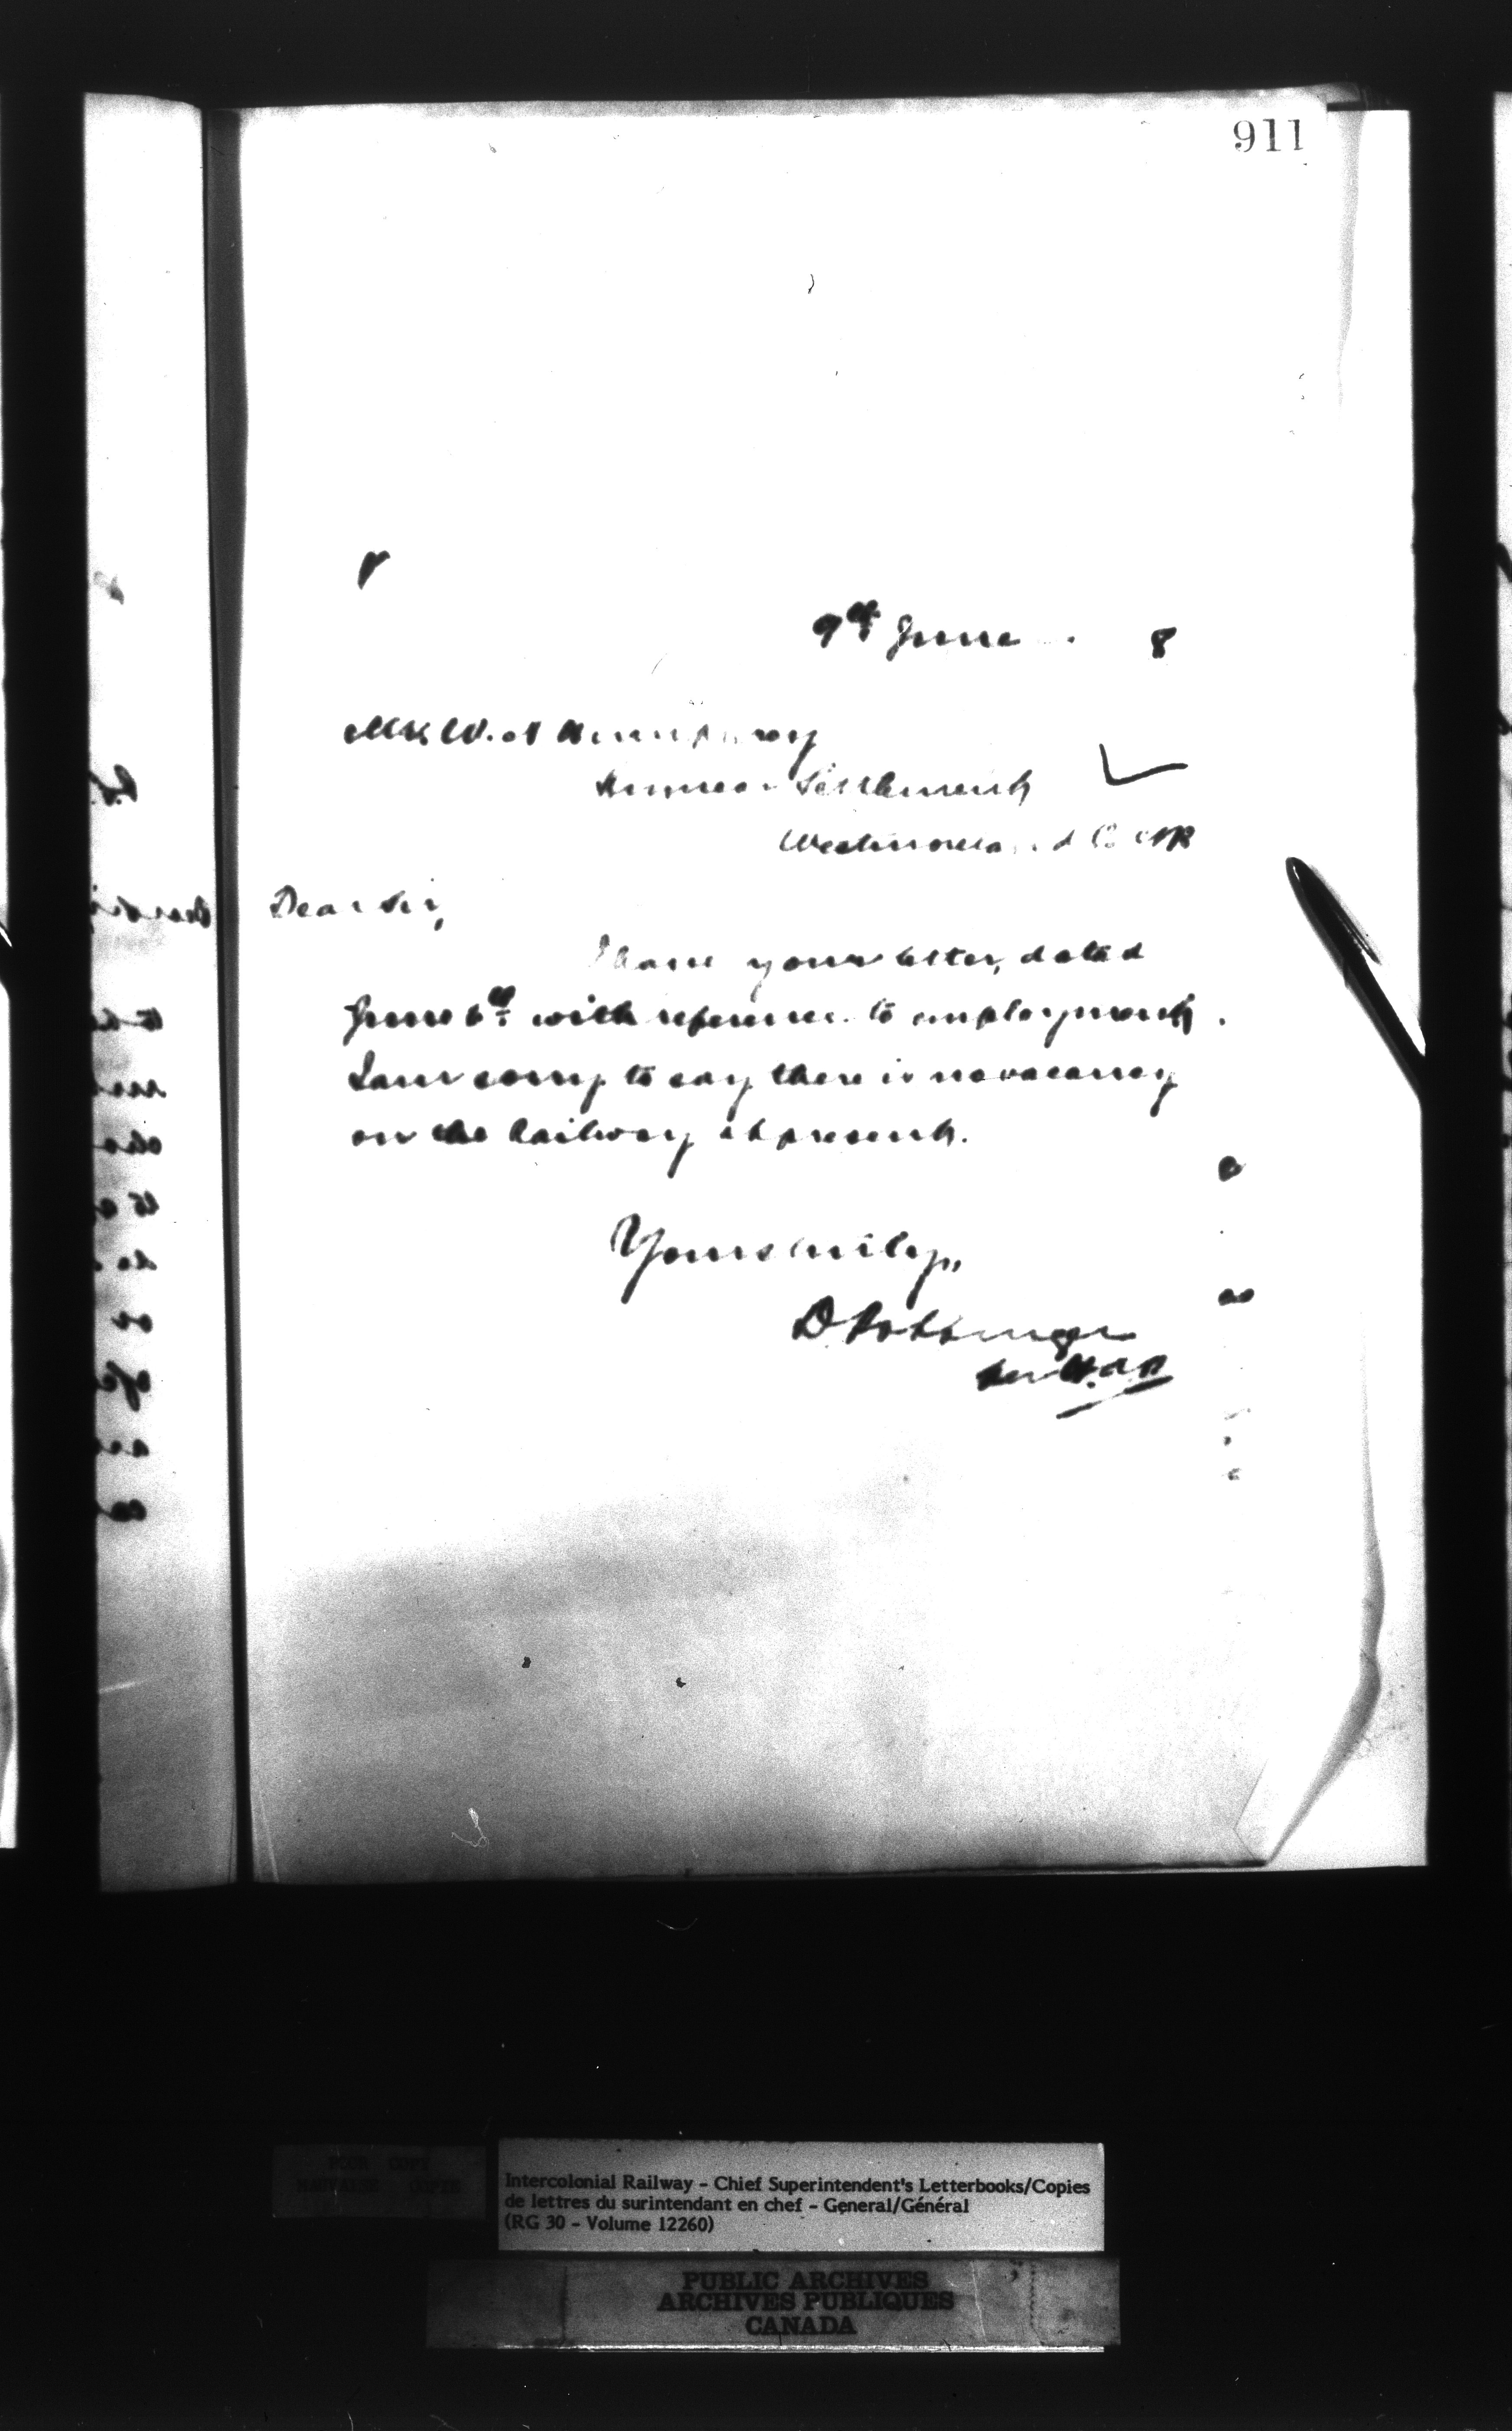 911
9th June 8
Mr. W. A Humphrey
Settlement
Westmoreland Co NB
Dear Sir,
I have your letter, dated
June 6th with reference to employment.
I am sorry to say there is no vacancy
on the Railway at present.
Yours truly,,
D Pottinger
per
POOR COPY
MAUVAISE COPIE
Intercolonial Railway - Chief Superintendent's Letterbooks/Copies
de lettres du surintendant en chef - General/Général
(RG 30 - Volume 12260)
PUBLIC ARCHIVES
ARCHIVES PUBLIQUES
CANADA